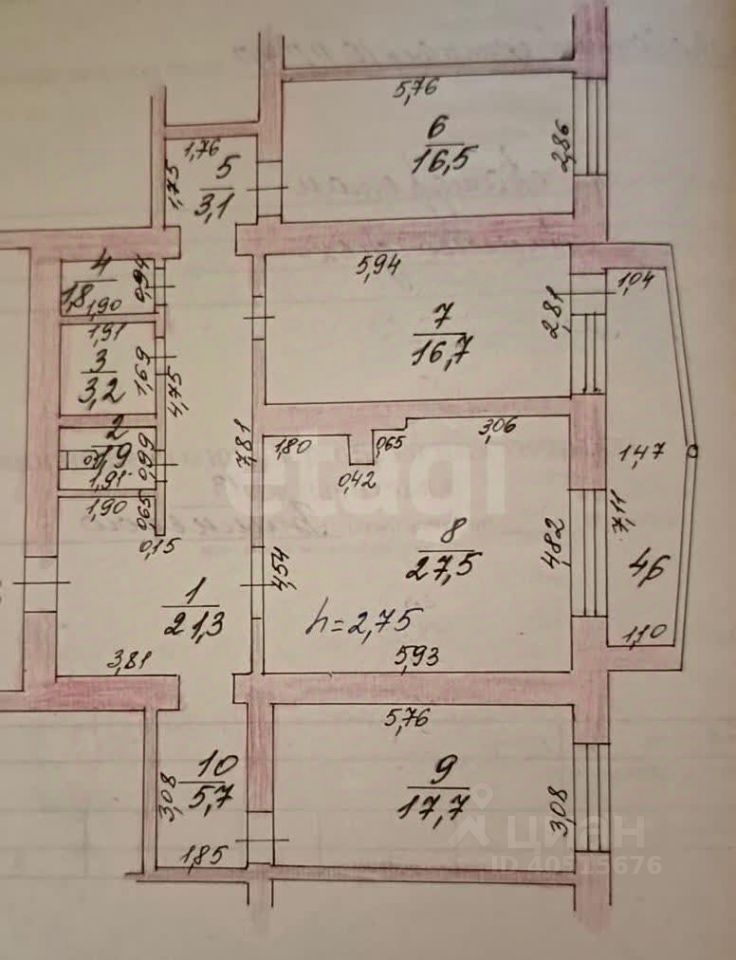 5,76
6
16,5
2,86
1,76
5
3,1
1,75
5,94
7
16,7
2,81
1,04
4
1,8
1,90
0,94
1,91
3
3,2
1,69
4,75
7,81
2
1,91
0,99
1,90
0,65
0,15
1,80
0,42
0,65
3,06
8
27,5
4,54
4,82
h=2,75
5,93
1,47
7,11
4,6
1,10
1
21,3
3,81
10
5,7
3,08
1,85
5,76
9
17,7
3,08
etagi
циан
ID 40515676